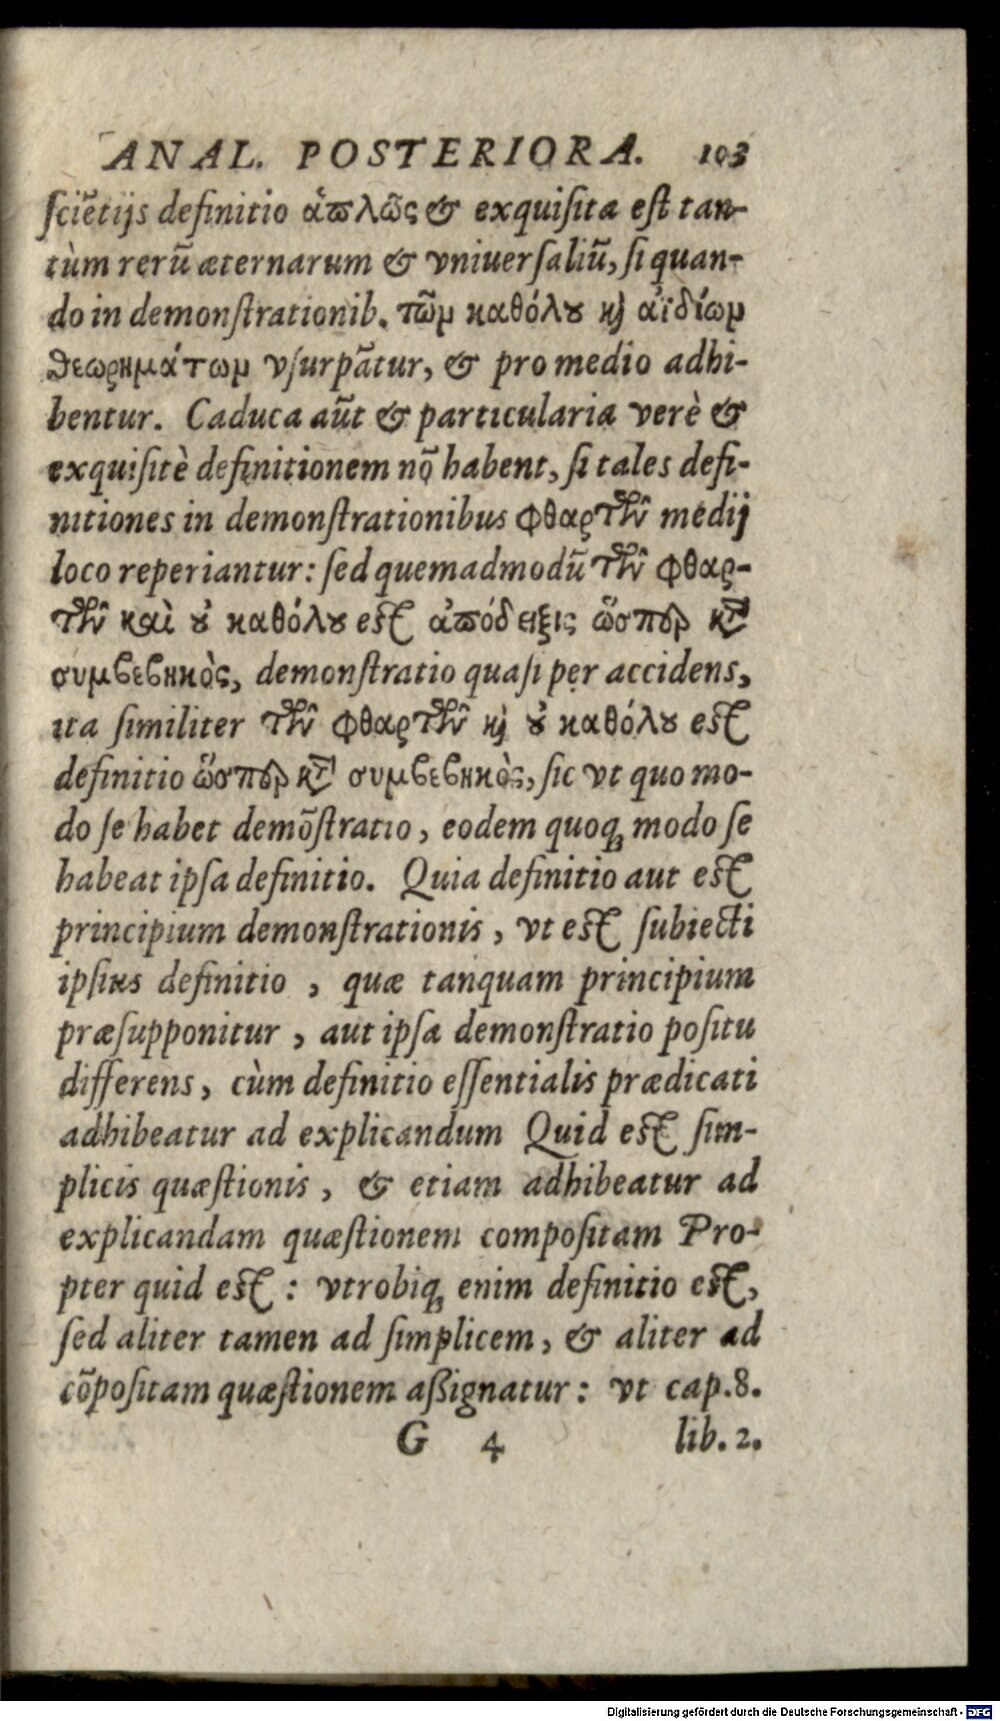 ANAL. POSTERIORA. 103
ſciẽtijs definitio ἁπλῶς & exquiſita eſt tan-
tùm rerũ æternarum & vniuerſaliũ, ſi quan-
do in demonſtrationib. τῶν καθόλȣ κỳ ἀϊδίων
θεωρημάτων vſurpãtur, & pro medio adhi-
bentur. Caduca aũt & particularia verè &
exquiſitè definitionem nõ habent, ſi tales defi-
nitiones in demonſtrationibus φθαρτῶν medij
loco reperiantur: ſed quemadmodũ τῶν φθαρ-
τῶν καὶ ȣ̓ καθόλȣ eſt ἀπόδειξις ὥσπερ κτ̃
συμβεβηκὸς, demonſtratio quaſi per accidens,
ita ſimiliter τῶν φθαρτῶν κỳ ȣ̓ καθόλȣ eſt
definitio ὥσπερ κτ̃ συμβεβηκὸς, ſic vt quo mo-
do ſe habet demõſtratio, eodem quoq; modo ſe
habeat ipſa definitio. Quia definitio aut eſt
principium demonſtrationis, vt eſt ſubiecti
ipſius definitio, quæ tanquam principium
præſupponitur, aut ipſa demonſtratio poſitu
differens, cùm definitio eſſentialis prædicati
adhibeatur ad explicandum Quid eſt ſim-
plicis quæſtionis, & etiam adhibeatur ad
explicandam quæſtionem compoſitam Pro-
pter quid eſt: vtrobiq; enim definitio eſt,
ſed aliter tamen ad ſimplicem, & aliter ad
cõpoſitam quæſtionem aßignatur: vt cap.8.
G 4 lib. 2.
Digitalisierung gefördert durch die Deutsche Forschungsgemeinschaft - DFG